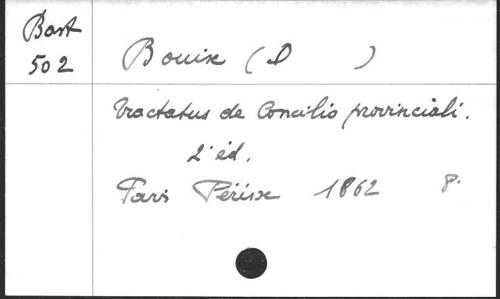 Bast
502
Bouix (D )
Tractatus de Concilio provinciali.
2. éd.
Paris Périsse 1862 8.